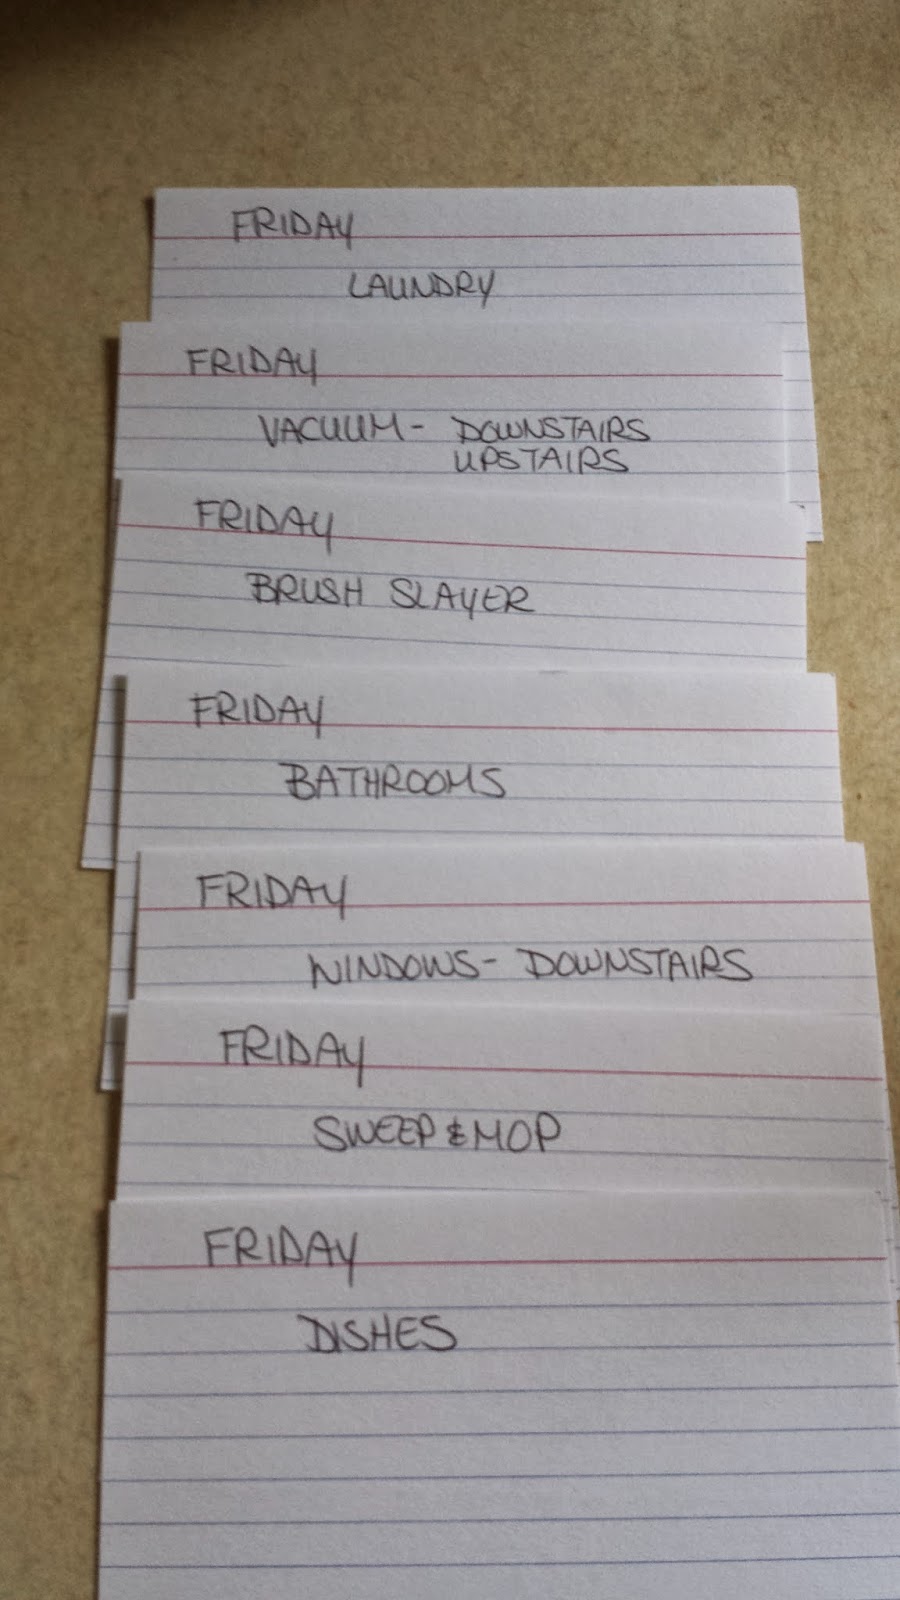 FRIDAY
LAUNDRY
FRIDAY
VACUUM - DOWNSTAIRS
UPSTAIRS
FRIDAY
BRUSH SLAYER
FRIDAY
BATHROOMS
FRIDAY
WINDOWS - DOWNSTAIRS
FRIDAY
SWEEP & MOP
FRIDAY
DISHES